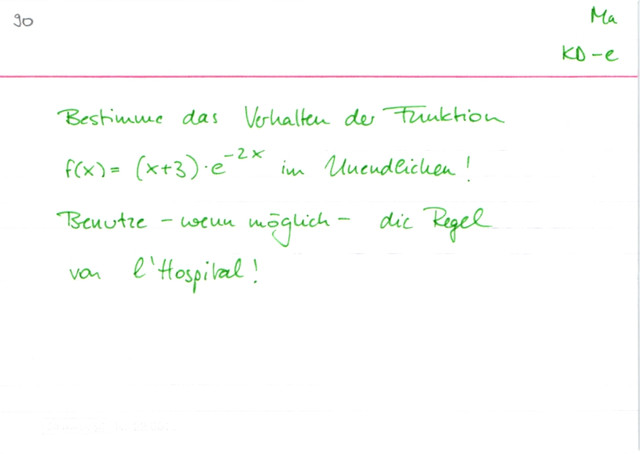 90
Ma
KD-e
Bestimme das Verhalten der Funktion
f(x) = (x+3)·e^{-2x} im Unendlichen!
Benutze - wenn möglich - die Regel
von l'Hospital!